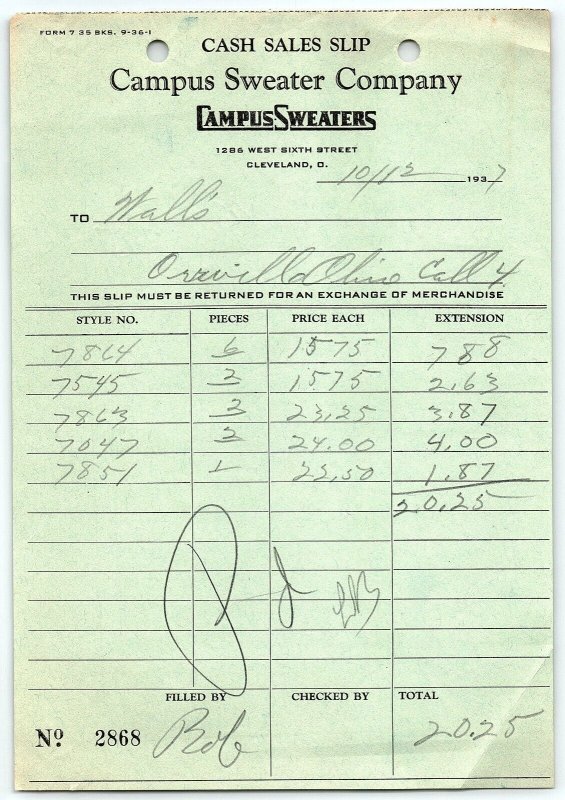 FORM 7 35 BKS. 9-36-1
CASH SALES SLIP
Campus Sweater Company
CAMPUS SWEATERS
1286 WEST SIXTH STREET
CLEVELAND, O.
10/12 1937
TO Wall's
Orrville Ohio Call 4
THIS SLIP MUST BE RETURNED FOR AN EXCHANGE OF MERCHANDISE
STYLE NO. PIECES PRICE EACH EXTENSION
7864 6 1575 7 88
7545 2 1575 2.63
7863 2 23.25 3.87
7047 2 24.00 4.00
7851 1 22.50 1.87
20.25
FILLED BY CHECKED BY TOTAL
No. 2868 Bob 20.25